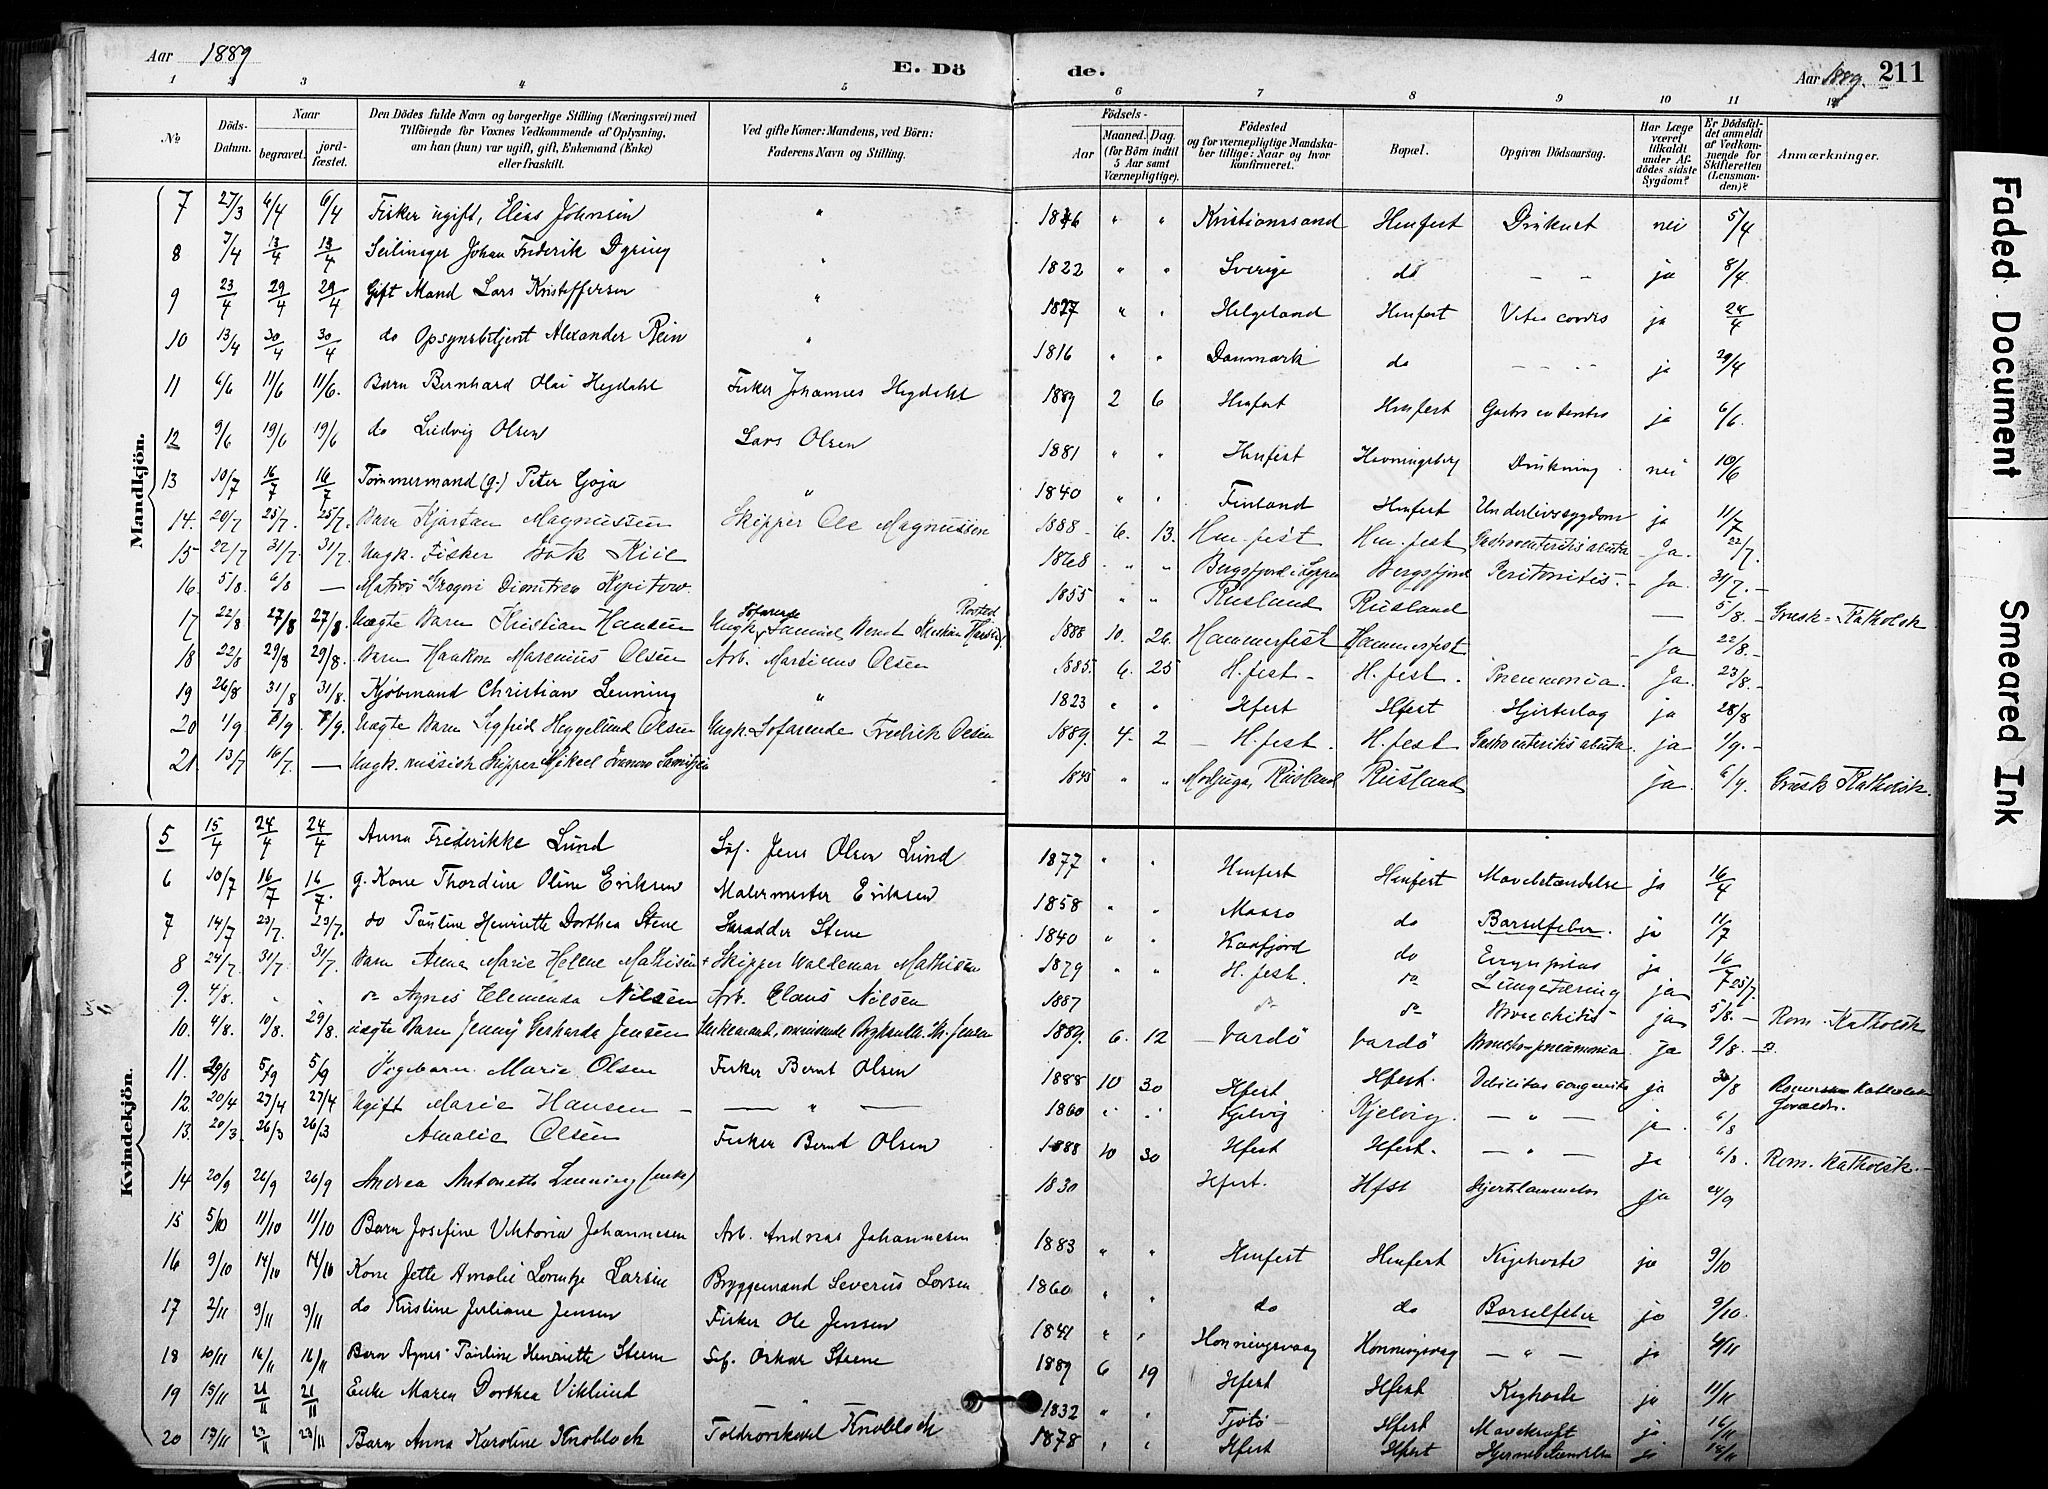 Aar 1889
E. Döde.
Aar 1889.
211
1 2 3 4 5 6 7 8 9 10 11 12
No
Döds-Datum.
Naar
begravet.
jord-fæstet.
Den Dödes fulde Navn og borgerlige Stilling (Næringsvei) med
Tilföiende for Voxnes Vedkommende af Oplysning,
om han (hun) var ugift, gift, Enkemand (Enke)
eller fraskilt.
Ved gifte Koner: Mandens, ved Börn:
Faderens Navn og Stilling.
Födsels-
Aar
Maaned. Dag.
(for Börn indtil
5 Aar samt
Værnepligtige).
Födested
og for værnepligtige Mandska-
ber tillige: Naar og hvor
konfirmeret.
Bopæl.
Opgiven Dödsaarsag.
Har Læge
været
tilkaldt
under Af-
dödes sidste
Sygdom?
Er Dödsfal-
det anmeldt
af Vedkom-
mende for
Skifteretten
(Lensman-
den)?
Anmærkninger.
Mandkjön.
7 27/3 6/4 6/4 Fisker ugift, Elias Johnsen " 1846 " " Kristianssand Hmfest Druknet nei 5/4
8 7/4 13/4 13/4 Johan Frederik Dyring " 1822 " " Sverige do — — ja 8/4
9 23/4 29/4 29/4 Gift Mand Lars Kristoffersen " 1827 " " Helgeland Hmfest Vitia cordis ja 24/4
10 13/4 30/4 30/4 do Opsynsbetjent Alexander Rein " 1816 " " Danmark do — — ja 29/4
11 6/6 11/6 11/6. Barn Bernhard Hegdahl Fisker Johannes Hegdahl 1889 2 6 Hmfest Hmfest ja 6/6.
12 9/6 19/6 19/6 do Ludvig Olsen Lars Olsen 1881 " " Hmfest Havningsberg Drukning nei 10/6
13 10/7 16/7 16/7 Tömmermand (g.) Peter Goja " 1840 " " Finland Hmfest Underlivssygdom ja 11/7
14. 20/7 25/7. 25/7. Barn Kjartan Magnussen Skipper Ole Magnussen 1888 6. 13. Hm.fest Hm.fest Gastroenteritis acuta Ja. 22/7.
15 22/7 31/7. 31/7. Ungk. Fisker Isak Kiil 1868 " " Bergsfjord i Loppen Bergsfjord Peritonitis. Ja. 31/7.
16. 5/8. 6/8 — Matros Dimitrien 1855 " " Rusland Rusland — 5/8. Græsk-Katholsk
17 22/8 27/8 27/8. Uægte Barn Kristian Hansen Ungk. Söfarende Samuel Bernt Kristian Hansen 1888 10. 26. Hammerfest Hammerfest Ja 22/8.
18 22/8 29/8 29/8. Barn Haakon Marenius Olsen Arb. Martinus Olsen 1885. 6. 25 H.fest H.fest. Pneumonia. Ja. 23/8.
19 26/8 31/8 31/8. Kjöbmand Christian Lenning " 1823 " " Hfest Hfest Hjerteslag ja 28/8
20 1/9 7/9 7/9. Uægte Barn Sigfrid Heggelund Olsen Ungk. Söfarende Fredrik Olsen 1889. 4. 2 H.fest. H.fest Gastroenteritis acuta. ja 1/9.
21. 13/7 16/7. — Ungk. russisk Skipper Mikael Ivanow 1845 " " Rusland Rusland ja. 6/9. Græsk Katholsk.
Kvindekjön.
5 15/4 24/4 24/4 Anna Frederikke Lund Söf. Jens Olsen Lund 1877 " " Hmfest Hmfest Mavebetændelse ja 16/4
6 10/7 16/7 16/7. g. Kone Thordine Oline Eriksen Malermester Eriksen 1858 " " Maasö do Barselfeber. ja 11/7
7 14/7 23/7. 23/7. do Pauline Henriette Dorthea Stene Skrædder Stene 1840 " " Kaafjord do ja 16/7
8 24/7. 31/7. 31/7. Barn Anna Marie Helene Mathisen Skipper Waldemar Mathisen 1879 " " H.fest. do Lungetæring ja 25/7.
9. 4/8. - - do Agnes Clemenda Nilsen Arb. Claus Nilsen 1887 do do Bronchitis ja 5/8. Rom.-Katholsk
10. 4/8. 10/8. 29/8. uægte Barn Jenny Gerharda Jensen Enkemand, Jensen 1889. 6. 12 Vardö Vardö Broncho-pneumonia ja 9/8
11. 29/8 5/9 5/9 Pigebarn Marie Olsen Fisker Bernt Olsen 1888 10 30 Hfest. Hfest. Debilitas congenita ja 30/8
12. 20/4 27/4 27/4 Ugift Marie Hansen — " — 1860 " " Kjelvig Kjelvig. — " — ja 6/8
13. 20/3. 26/3 26/3 Amalie Olsen Fisker Bernt Olsen 1888 10 30 Hfest Hfest. — " — Ja 6/8. Rom. Katholsk.
14 20/9 26/9 26/9 Andrea Antonette Lenning (enke) 1830 Hfest. Hfst ja 24/9
15 5/10 11/10 11/10 Barn Josefine Viktoria Johannesen Arb. Andreas Johannesen 1883 " " Hmfest Hmfest Kighoste ja 9/10
16 9/10 14/10 14/10 Kone Jette Amalie Lorntze Larsen Bryggemand Severus Larsen 1860 " " do do Barselfeber jo 9/10.
17 2/11 9/11 9/11 do Kristine Juliane Jensen Fisker Ole Jensen 1841 " " Honningsvaag Honningsvaag — " — ja 4/11
18 10/11 16/11 16/11 Barn Agnes Pauline Henriette Steene Söf. Oskar Steene 1889 6 19 Hfest Hfest Kighoste ja 11/11
19 15/11 21/11 21/11 Enke Maren Dorthea Viklund 1832 " " Tjötö Hfest Mavekræft ja 16/11
20 17/11 23/11 23/11 Barn Anna Karoline Knoblock Toldrorskarl Knoblock 1878 " " Hfest Hfest Hjernebetændelse jo 18/11
Faded Document
Smeared Ink